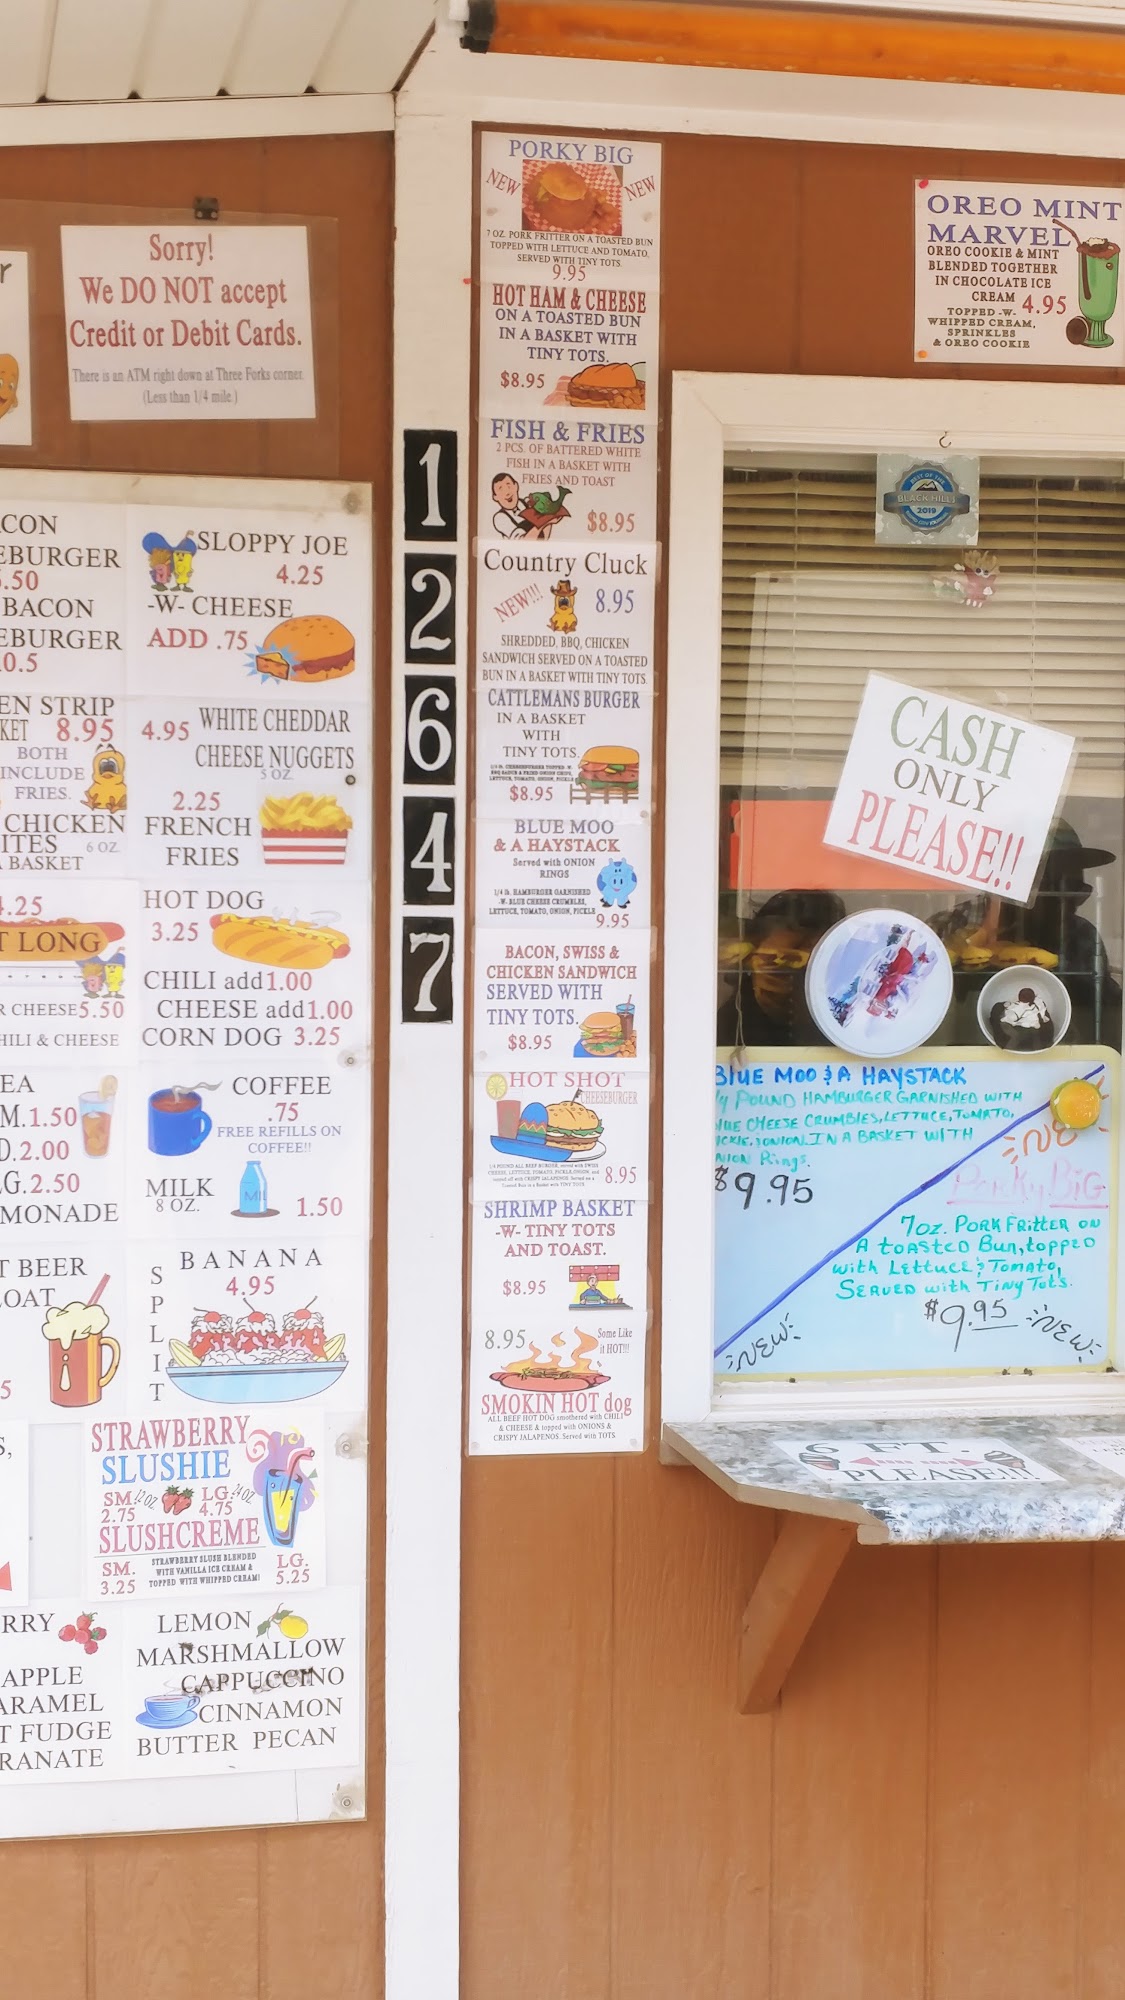 Sorry!
We DO NOT accept
Credit or Debit Cards.
There is an ATM right down at Three Forks corner.
(Less than 1/4 mile.)
CON
EBURGER
.50
BACON
EBURGER
0.5
EN STRIP
KET 8.95
BOTH
INCLUDE
FRIES.
CHICKEN
ITES 6 OZ.
A BASKET
4.25
T LONG
R CHEESE 5.50
HILI & CHEESE
EA
M. 1.50
D. 2.00
G. 2.50
MONADE
T BEER
LOAT
5
SLOPPY JOE
4.25
-W- CHEESE
ADD .75
4.95 WHITE CHEDDAR
CHEESE NUGGETS
5 OZ.
2.25
FRENCH
FRIES
HOT DOG
3.25
CHILI add 1.00
CHEESE add 1.00
CORN DOG 3.25
COFFEE
.75
FREE REFILLS ON
COFFEE!!
MILK
8 OZ.
MIL
1.50
BANANA
4.95
SPLIT
STRAWBERRY
SLUSHIE
SM. 12 OZ LG. 24 OZ
2.75 4.75
SLUSHCREME
SM.
3.25
STRAWBERRY SLUSH BLENDED
WITH VANILLA ICE CREAM &
TOPPED WITH WHIPPED CREAM!
LG.
5.25
RRY
APPLE
ARAMEL
T FUDGE
RANATE
LEMON
MARSHMALLOW
CAPPUCCINO
CINNAMON
BUTTER PECAN
1
2
6
4
7
PORKY BIG
NEW NEW
7 OZ. PORK FRITTER ON A TOASTED BUN
TOPPED WITH LETTUCE AND TOMATO,
SERVED WITH TINY TOTS.
9.95
HOT HAM & CHEESE
ON A TOASTED BUN
IN A BASKET WITH
TINY TOTS.
$8.95
FISH & FRIES
2 PCS. OF BATTERED WHITE
FISH IN A BASKET WITH
FRIES AND TOAST
$8.95
Country Cluck
NEW!!! 8.95
SHREDDED, BBQ, CHICKEN
SANDWICH SERVED ON A TOASTED
BUN IN A BASKET WITH TINY TOTS.
CATTLEMANS BURGER
IN A BASKET
WITH
TINY TOTS.
1/4 lb. CHEESEBURGER TOPPED -W-
BBQ SAUCE & FRIED ONION CHIPS,
LETTUCE, TOMATO, ONION, PICKLE
$8.95
BLUE MOO
& A HAYSTACK
Served with ONION
RINGS
1/4 lb. HAMBURGER GARNISHED
-W- BLUE CHEESE CRUMBLES,
LETTUCE, TOMATO, ONION, PICKLE
9.95
BACON, SWISS &
CHICKEN SANDWICH
SERVED WITH
TINY TOTS.
$8.95
HOT SHOT
CHEESEBURGER
8.95
SHRIMP BASKET
-W- TINY TOTS
AND TOAST.
$8.95
8.95 Some Like
it HOT!!!
SMOKIN HOT dog
ALL BEEF HOT DOG smothered with CHILI
& CHEESE & topped with ONIONS &
CRISPY JALAPENOS. Served with TOTS.
OREO MINT
MARVEL
OREO COOKIE & MINT
BLENDED TOGETHER
IN CHOCOLATE ICE
CREAM 4.95
TOPPED -W-
WHIPPED CREAM,
SPRINKLES
& OREO COOKIE
BEST OF THE
BLACK HILLS
2019
CASH
ONLY
PLEASE!!
BLUE MOO & A HAYSTACK
1/4 POUND HAMBURGER GARNISHED WITH
LUE CHEESE CRUMBLES, LETTUCE, TOMATO,
ICKLE, & ONION. IN A BASKET WITH
NION Rings.
$9.95
Porky BiG
7oz. PORK FRITTER ON
A TOASTED BUN, topped
with LETTUCE & TOMATO,
SERVED with Tiny Tots.
$9.95
NEW NEW
6 FT.
PLEASE!!!